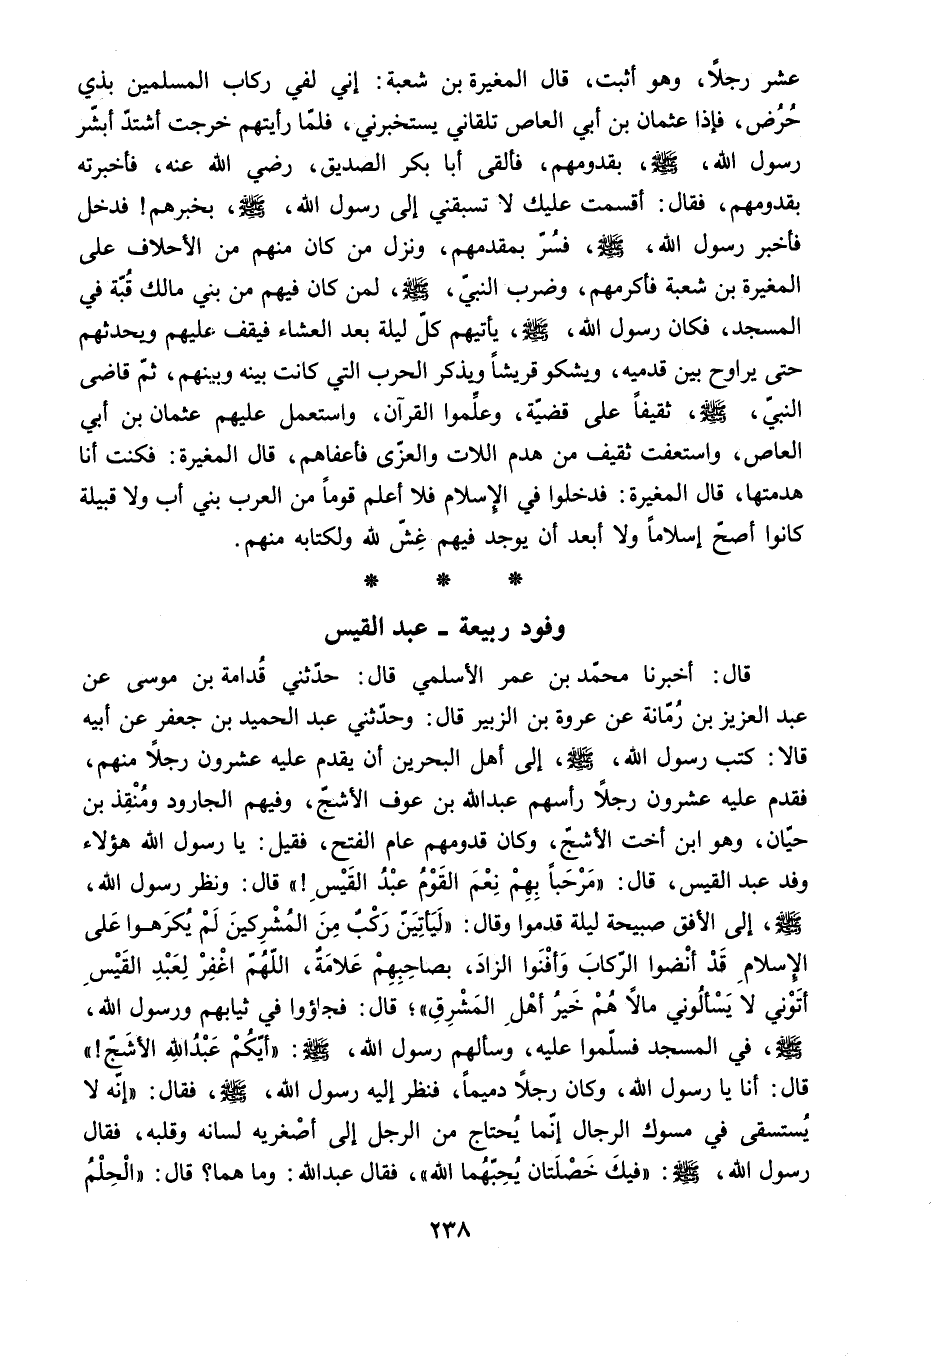 عشر رجلًا، وهو أثبت، قال المغيرة بن شعبة: إني لفي ركاب المسلمين بذي
حُرُض، فإذا عثمان بن أبي العاص تلقاني يستخبرني، فلمّا رأيتهم خرجت أشتدّ أبشّر
رسول الله، ﷺ، بقدومهم، فألقى أبا بكر الصديق، رضي الله عنه، فأخبرته
بقدومهم، فقال: أقسمت عليك لا تسبقني إلى رسول الله، ﷺ، بخبرهم! فدخل
فأخبر رسول الله، ﷺ، فسُرّ بمقدمهم، ونزل من كان منهم من الأحلاف على
المغيرة بن شعبة فأكرمهم، وضرب النبيّ، ﷺ، لمن كان فيهم من بني مالك قُبّة في
المسجد، فكان رسول الله، ﷺ، يأتيهم كلّ ليلة بعد العشاء فيقف عليهم ويحدثهم
حتى يراوح بين قدميه، ويشكو قريشاً ويذكر الحرب التي كانت بينه وبينهم، ثمّ قاضى
النبيّ، ﷺ، ثقيفاً على قضيّة، وعلّموا القرآن، واستعمل عليهم عثمان بن أبي
العاص، واستعفت ثقيف من هدم اللات والعزّى فأعفاهم، قال المغيرة: فكنت أنا
هدمتها، قال المغيرة: فدخلوا في الإسلام فلا أعلم قوماً من العرب بني أب ولا قبيلة
كانوا أصحّ إسلاماً ولا أبعد أن يوجد فيهم غِشّ لله ولكتابه منهم.
* * *
وفود ربيعة ـ عبد القيس
قال: أخبرنا محمّد بن عمر الأسلمي قال: حدّثني قُدامة بن موسى عن
عبد العزيز بن رُمّانة عن عروة بن الزبير قال: وحدّثني عبد الحميد بن جعفر عن أبيه
قالا: كتب رسول الله، ﷺ، إلى أهل البحرين أن يقدم عليه عشرون رجلًا منهم،
فقدم عليه عشرون رجلًا رأسهم عبدالله بن عوف الأشجّ، وفيهم الجارود ومُنْقِذ بن
حيّان، وهو ابن أخت الأشجّ، وكان قدومهم عام الفتح، فقيل: يا رسول الله هؤلاء
وفد عبد القيس، قال: «مَرْحَباً بِهِمْ نِعْمَ القَوْمُ عبْدُ القَيْسِ!» قال: ونظر رسول الله،
ﷺ، إلى الأفق صبيحة ليلة قدموا وقال: «لَيَأتِيَنّ رَكْبٌ مِنَ المُشْرِكينَ لَمْ يُكرَهوا عَلى
الإسلامِ قَدْ أنْضوا الرّكابَ وَأفْنَوا الزادَ، بصاحِبِهِمْ عَلامَةٌ، اللّهُمّ اغْفِرْ لِعَبْدِ القَيْسِ
أتَوْني لا يَسْألُوني مالًا هُمْ خَيرُ أهْلِ المَشْرِقِ»؛ قال: فجاؤوا في ثيابهم ورسول الله،
ﷺ، في المسجد فسلّموا عليه، وسألهم رسول الله، ﷺ: «أيّكُمْ عَبْدُاللهِ الأشَجّ!»
قال: أنا يا رسول الله، وكان رجلًا دميماً، فنظر إليه رسول الله، ﷺ، فقال: «إنّه لا
يُستسقى في مسوك الرجال إنّما يُحتاج من الرجل إلى أصْغريه لسانه وقلبه، فقال
رسول الله، ﷺ: «فيكَ خَصْلَتَان يُحِبّهُما الله»، فقال عبدالله: وما هما؟ قال: «الْحِلْمُ
٢٣٨